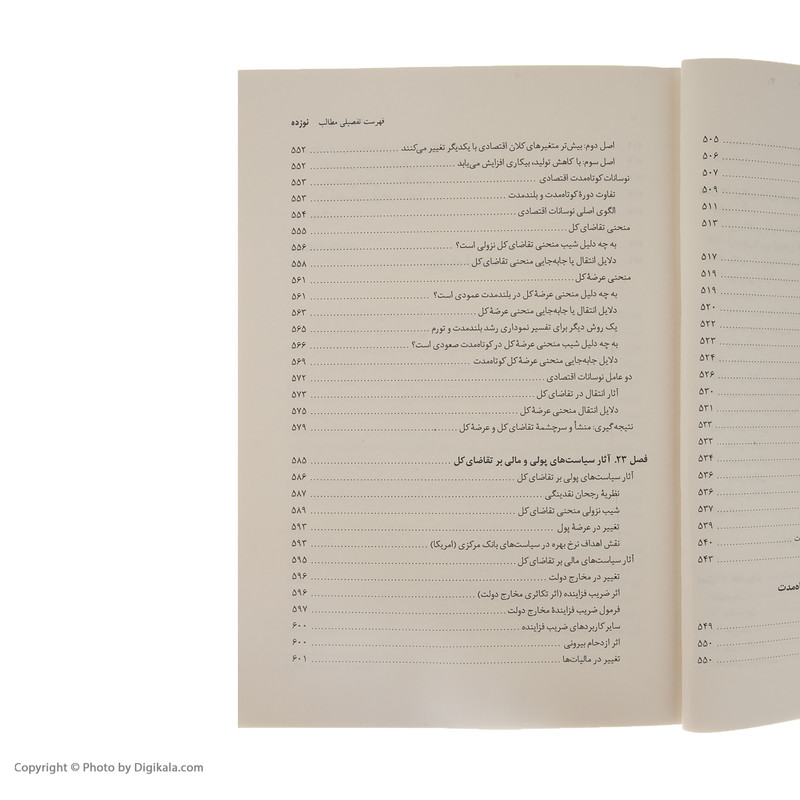 ۵۰۵
۵۰۶
۵۰۷
۵۰۹
۵۱۱
۵۱۳
۵۱۷
۵۱۹
۵۱۹
۵۲۰
۵۲۲
۵۲۳
۵۲۴
۵۲۶
۵۳۰
۵۳۱
۵۳۳
۵۳۳
۵۳۴
۵۳۶
۵۳۶
۵۳۷
۵۳۹
۵۴۰
۵۴۳
۵۴۹
۵۵۰
۵۵۰
فهرست تفصیلی مطالب نوزده
اصل دوم: بیش‌تر متغیرهای کلان اقتصادی با یکدیگر تغییر می‌کنند ۵۵۲
اصل سوم: با کاهش تولید، بیکاری افزایش می‌یابد ۵۵۲
نوسانات کوتاه‌مدت اقتصادی ۵۵۳
تفاوت دورهٔ کوتاه‌مدت و بلندمدت ۵۵۳
الگوی اصلی نوسانات اقتصادی ۵۵۴
منحنی تقاضای کل ۵۵۵
به چه دلیل شیب منحنی تقاضای کل نزولی است؟ ۵۵۶
دلایل انتقال یا جابه‌جایی منحنی تقاضای کل ۵۵۸
منحنی عرضهٔ کل ۵۶۱
به چه دلیل منحنی عرضهٔ کل در بلندمدت عمودی است؟ ۵۶۱
دلایل انتقال یا جابه‌جایی منحنی عرضهٔ کل ۵۶۳
یک روش دیگر برای تفسیر نموداری رشد بلندمدت و تورم ۵۶۵
به چه دلیل شیب منحنی عرضهٔ کل در کوتاه‌مدت صعودی است؟ ۵۶۶
دلایل جابه‌جایی منحنی عرضهٔ کل کوتاه‌مدت ۵۶۹
دو عامل نوسانات اقتصادی ۵۷۲
آثار انتقال در تقاضای کل ۵۷۳
دلایل انتقال منحنی عرضهٔ کل ۵۷۵
نتیجه‌گیری: منشأ و سرچشمهٔ تقاضای کل و عرضهٔ کل ۵۷۹
فصل ۲۳. آثار سیاست‌های پولی و مالی بر تقاضای کل ۵۸۵
آثار سیاست‌های پولی بر تقاضای کل ۵۸۶
نظریهٔ رجحان نقدینگی ۵۸۷
شیب نزولی منحنی تقاضای کل ۵۸۹
تغییر در عرضهٔ پول ۵۹۳
نقش اهداف نرخ بهره در سیاست‌های بانک مرکزی (امریکا) ۵۹۳
آثار سیاست‌های مالی بر تقاضای کل ۵۹۵
تغییر در مخارج دولت ۵۹۶
اثر ضریب فزاینده (اثر تکاثری مخارج دولت) ۵۹۶
فرمول ضریب فزایندهٔ مخارج دولت ۵۹۷
سایر کاربردهای ضریب فزاینده ۶۰۰
اثر ازدحام بیرونی ۶۰۰
تغییر در مالیات‌ها ۶۰۱
Copyright © Photo by Digikala.com